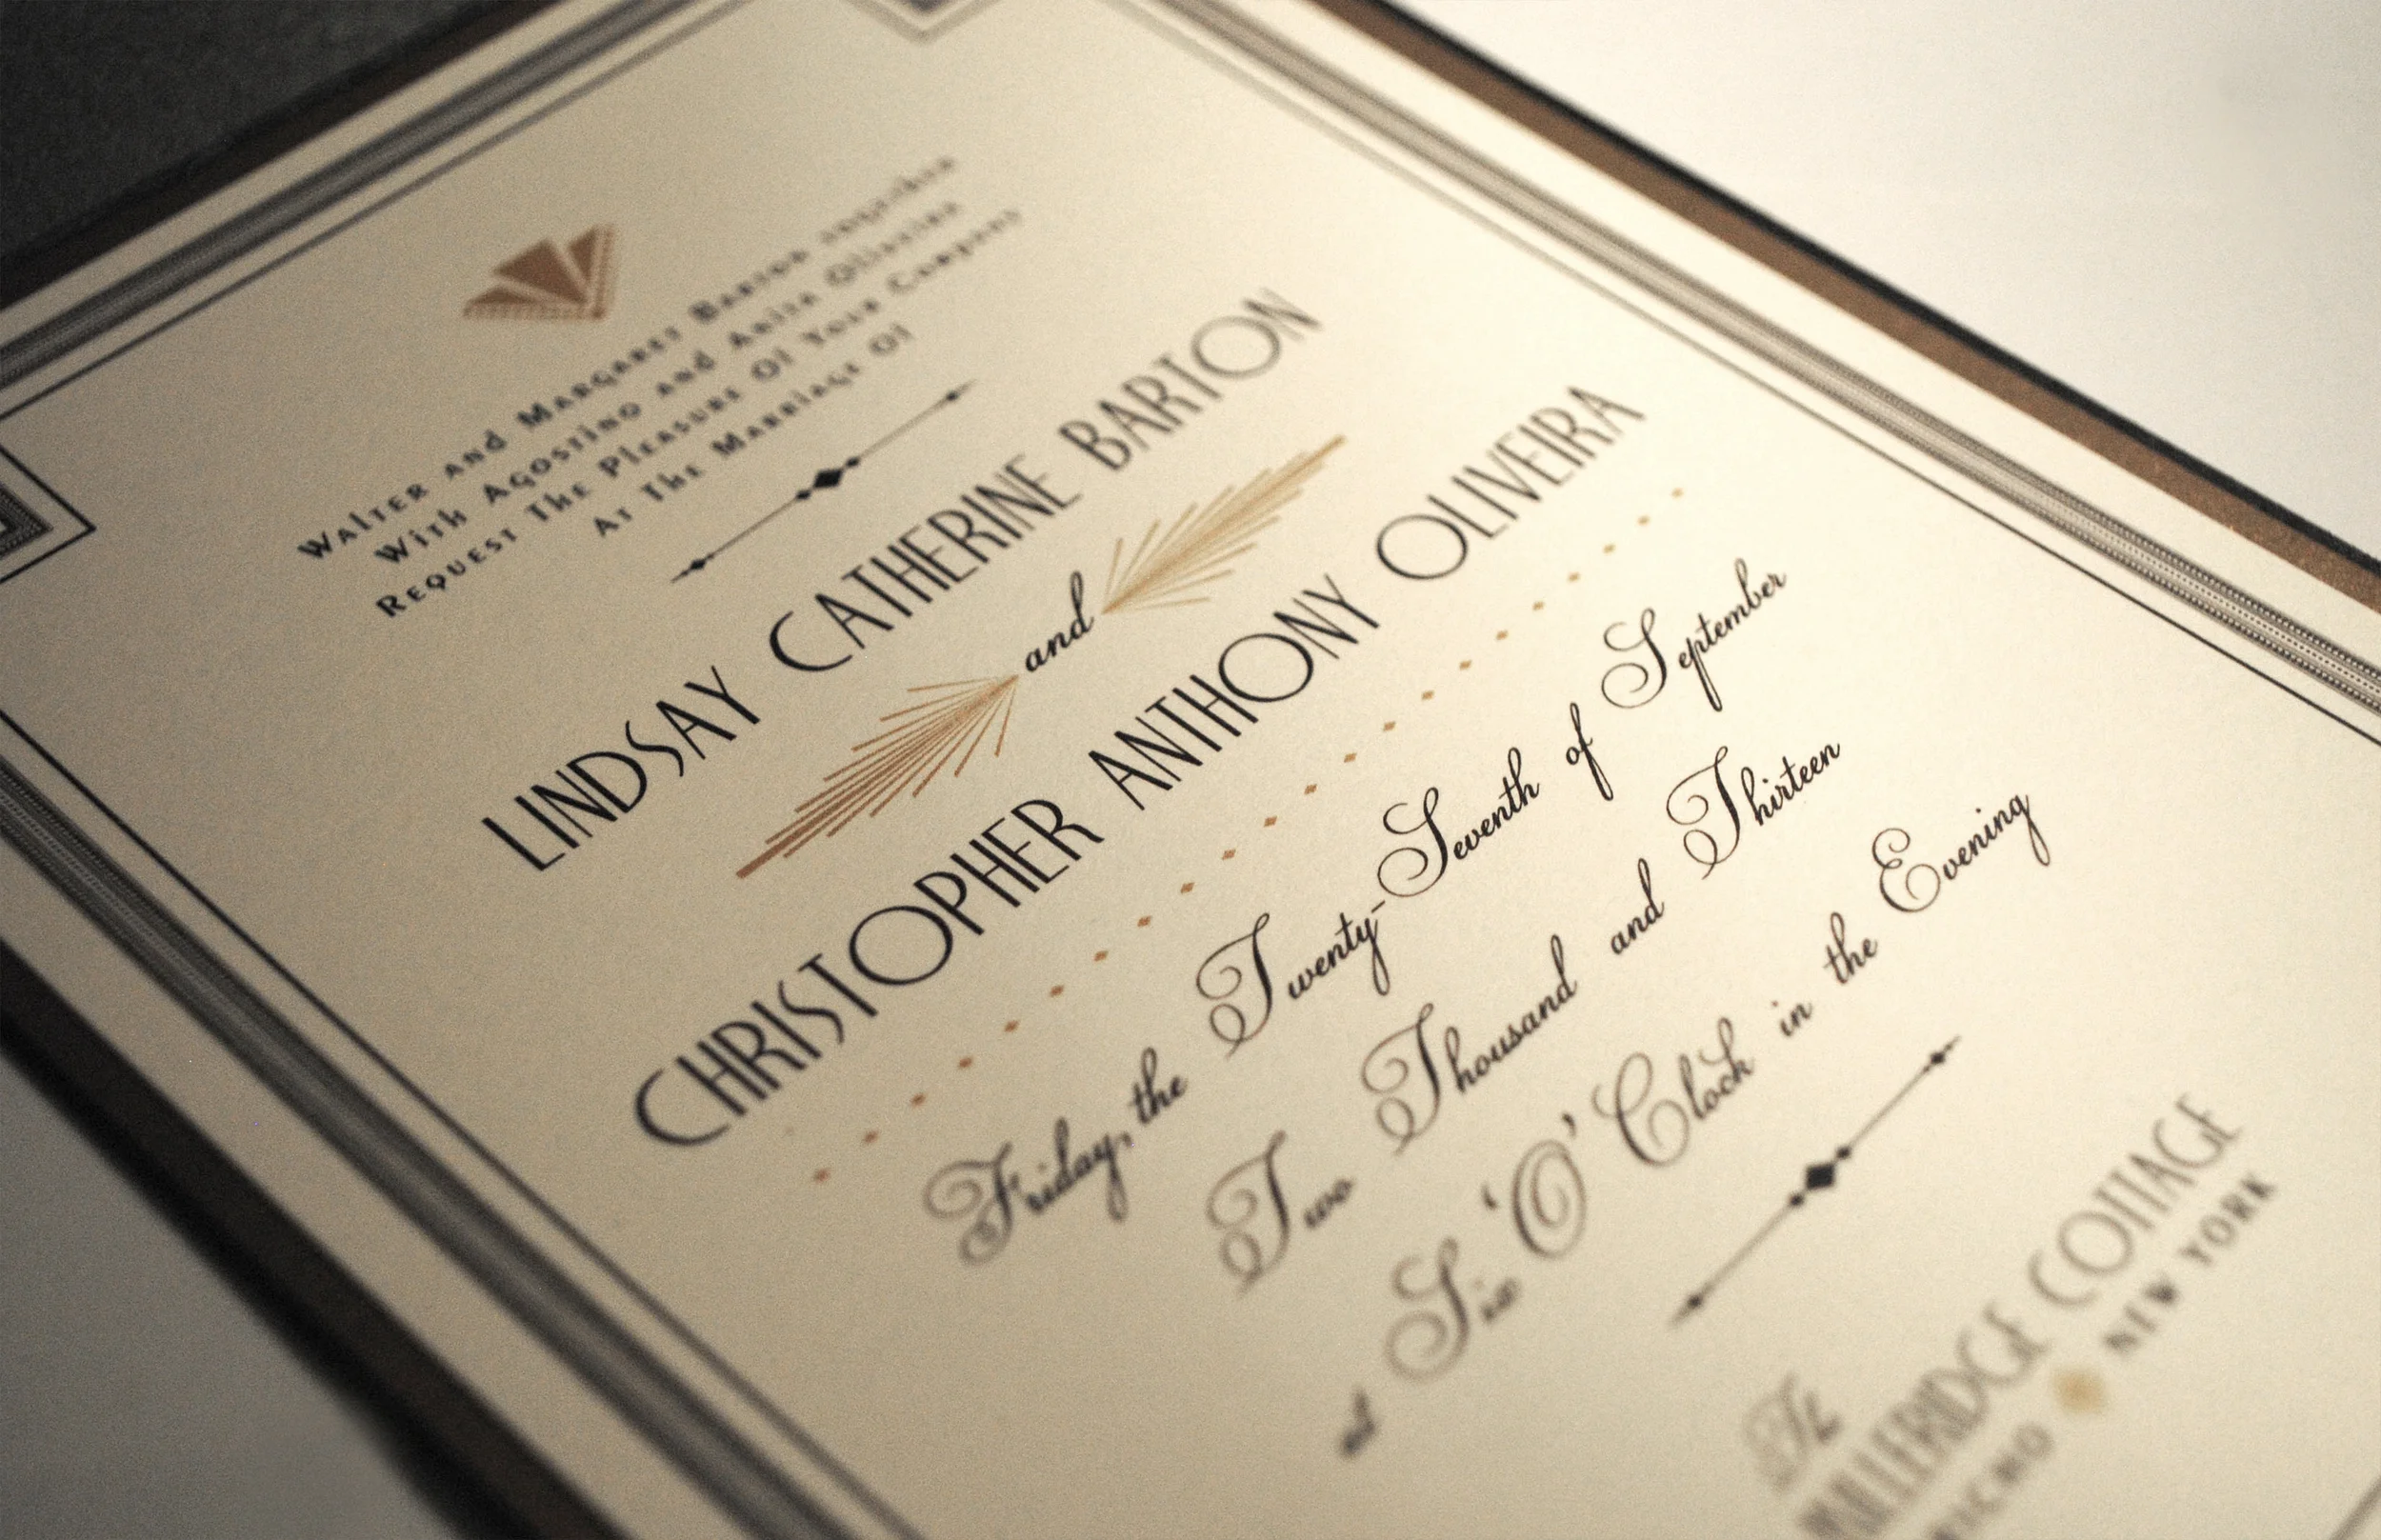 Walter and Margaret Barton together
With Agostino and Anita Oliveira
Request The Pleasure Of Your Company
At The Marriage Of
LINDSAY CATHERINE BARTON
and
CHRISTOPHER ANTHONY OLIVEIRA
Friday, the Twenty-Seventh of September
Two Thousand and Thirteen
at Six 'O' Clock in the Evening
The
COTTAGE
NEW YORK